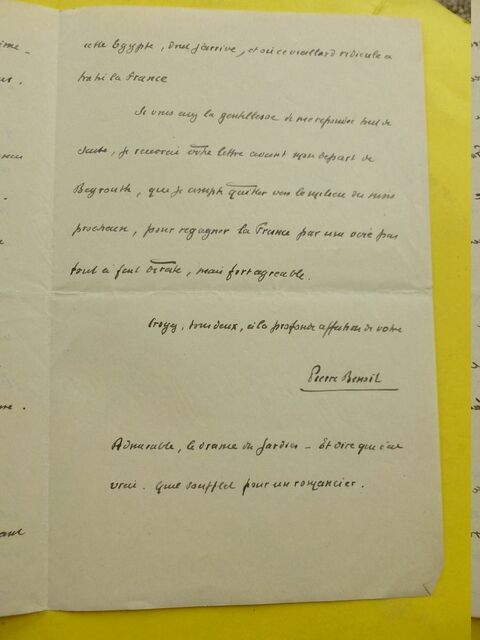 ime -
cette Egypte, d'où j'arrive, et où ce vieillard ridicule a
trahi la France
Si vous avez la gentillesse de me répondre tout de
suite, je recevrai votre lettre avant mon départ de
Beyrouth, que je compte quitter vers le milieu du mois
prochain, pour regagner la France par une voie pas
tout à fait droite, mais fort agréable.
Croyez, tous deux, à la profonde affection de votre
Pierre Benoit
Admirable, le drame du Jardin - Et dire que c'est
vrai. Quel soufflet pour un romancier.